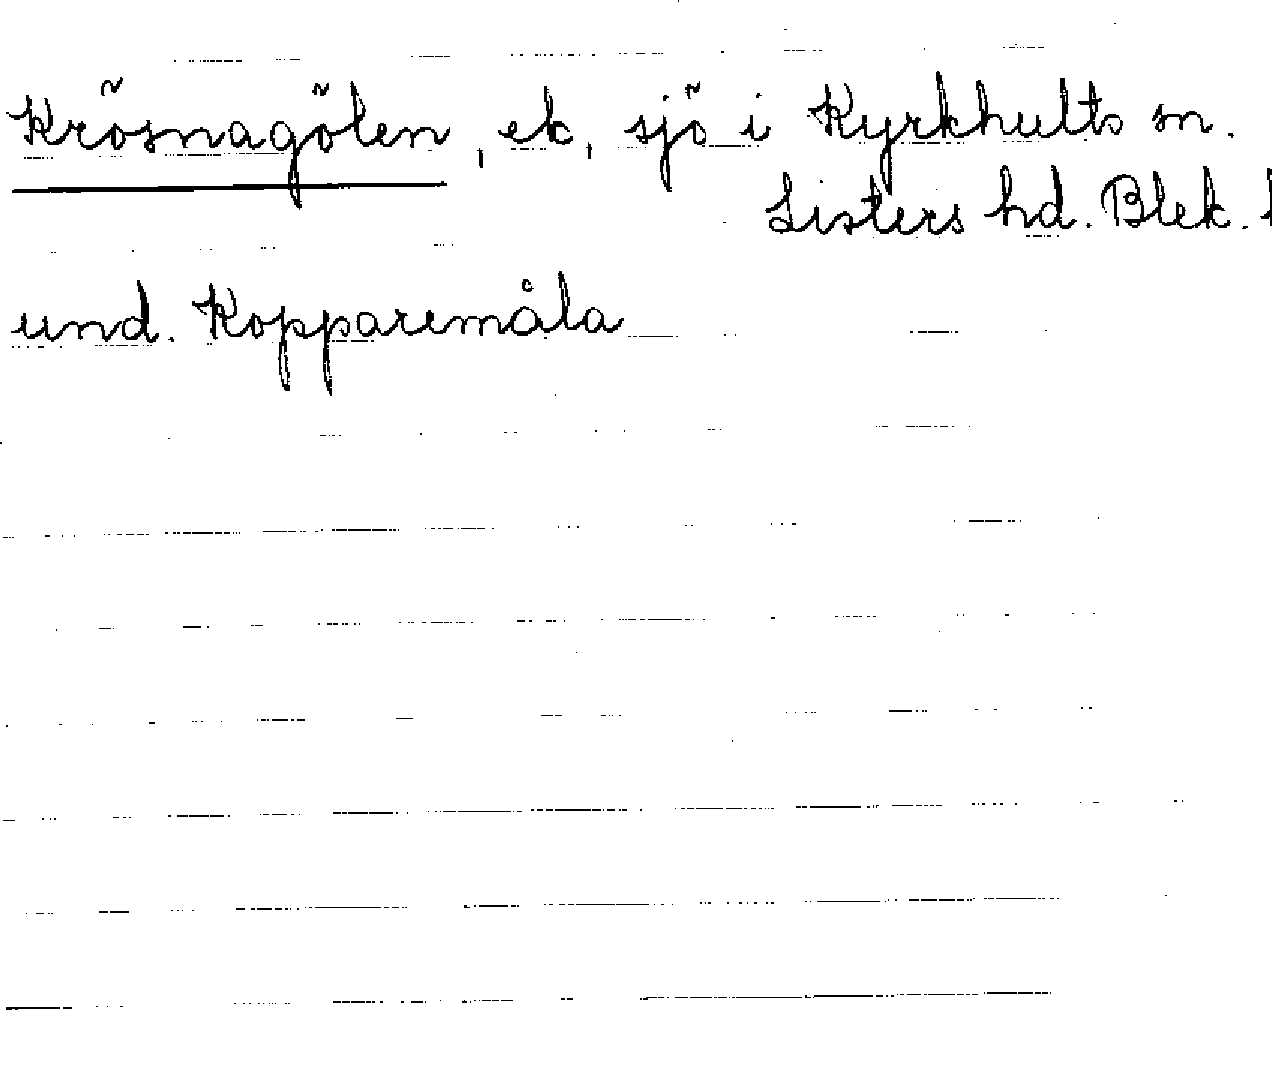 Krösnagölen, ek, sjö i Kyrkhults sn.
Listers hd. Blek.
und. Kopparemåla